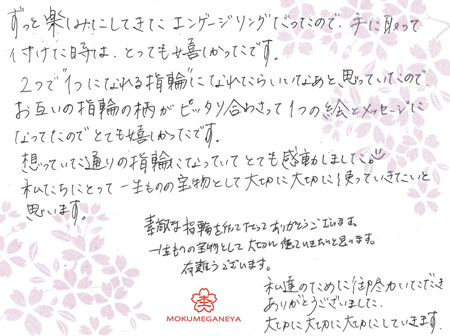 ずっと楽しみにしてきたエンゲージリングだったので、手に取って
付けた時は、とっても嬉しかったです。
2つで"1つになれる指輪"になれたらいいなあと思っていたので
お互いの指輪の柄がピッタリ合わさって1つの絵とメッセージに
なってたのでとても嬉しかったです。
想っていた通りの指輪になっていてとても感動しました。
私たちにとって一生ものの宝物として大切に大切に使っていきたいと
思います。
素敵な指輪を作って下さってありがとうございます。
一生ものの宝物として大切に使っていきたいと思います。
有難うございます。
私達のために御協力いただき
ありがとうございました。
大切に大切に大切にしていきます。
MOKUMEGANEYA